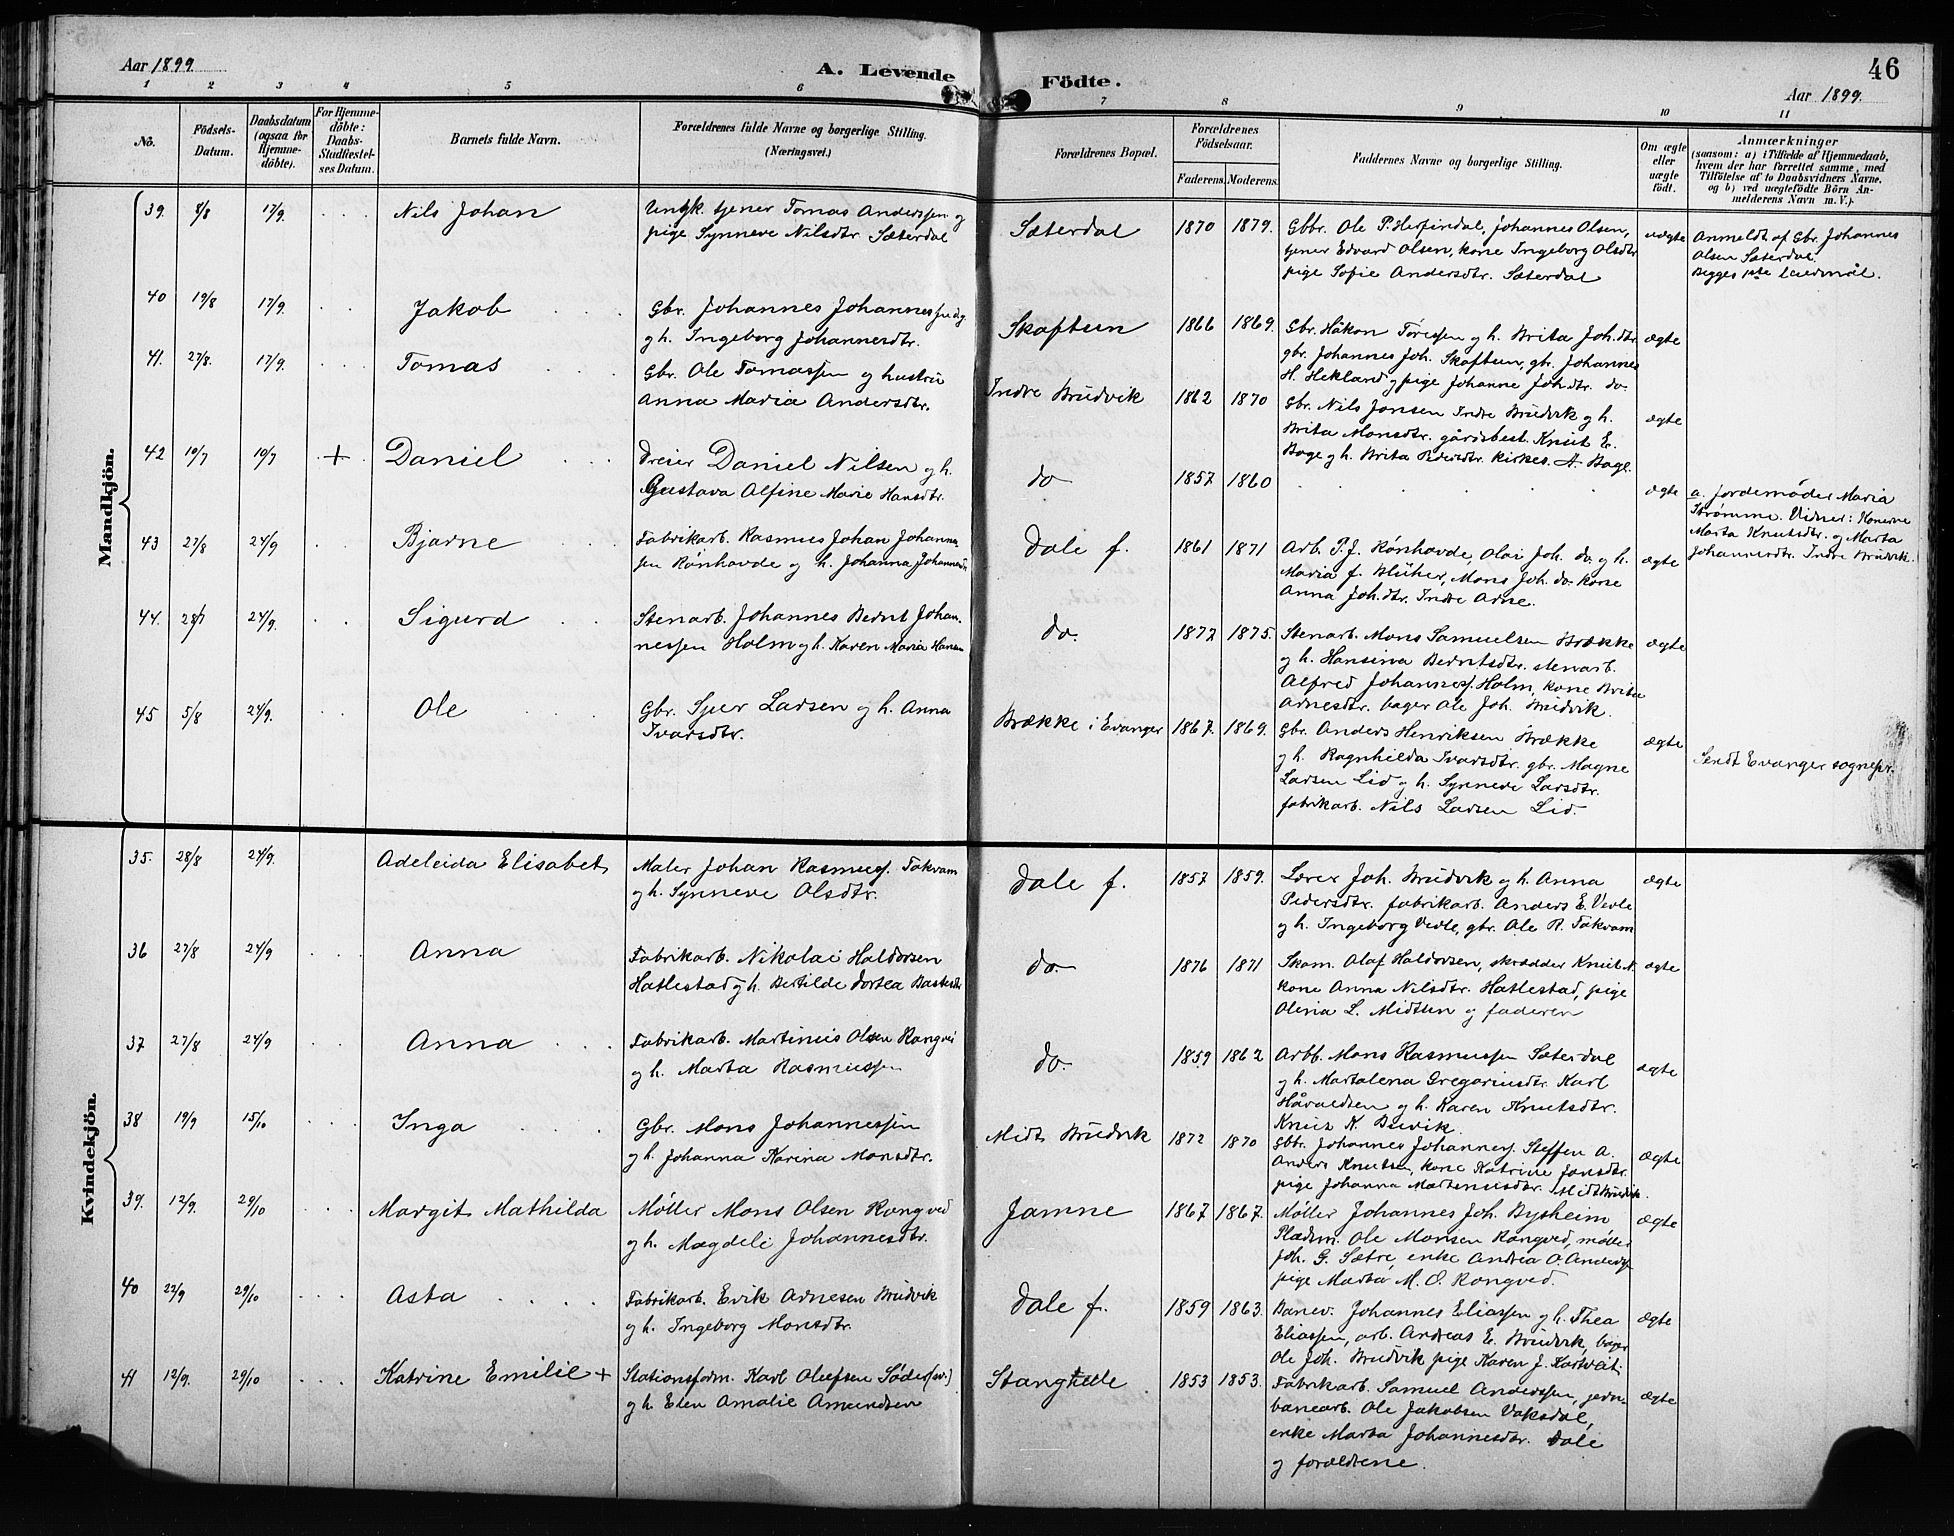 Aar 1899.
A. Levende Födte.
46
Aar 1899.
1 2 3 4 5 6 7 8 9 10 11
No.
Födsels-Datum.
Daabsdatum (ogsaa for Hjemmedöbte).
For Hjemmedöbte: Daabs-Stadfæstelses Datum.
Barnets fulde Navn.
Forældrenes fulde Navne og borgerlige Stilling. (Næringsvei.)
Forældrenes Bopæl.
Forældrenes Födselsaar.
Faderens. Moderens.
Faddernes Navne og borgerlige Stilling.
Om ægte eller uægte födt.
Anmærkninger
(saasom: a) i Tilfælde af Hjemmedaab,
hvem der har forrettet samme, med
Tilföielse af to Daabsvidners Navne,
og b) ved uægtefödte Börn An-
melderens Navn m. V.)
Mandkjön.
39. 8/8 17/9. Nils Johan
Ungk. tjener Tomas Anderssen og
pige Synneve Nilsdtr. Sæterdal
Sæterdal 1870 1879.
Gbbr. Ole P. Herfindal, Johannes Olsen,
tjener Edvard Olsen, kone Ingeborg Olsdtr.
pige Sofie Andersdtr. Sæterdal
uægte
Anmeldt af Gbr. Johannes
Olsen Sæterdal.
Begges 1ste leiermål.
40 19/8 17/9. Jakob
Gbr. Johannes Johannessen
og h. Ingeborg Johannesdtr.
Skaftun 1866 1869.
Gbr. Håkon Tøressen og h. Brita Joh.dtr.
gbr. Johannes Joh. Skaftun, gbr. Johannes
H. Hekland og pige Johanne Joh.dtr. do.
ægte
41. 27/8. 17/9. Tomas
Gbr. Ole Tomassen og hustru
Anna Maria Andersdtr.
Indre Brudvik 1862 1870
Gbr. Nils Jonsen Indre Brudvik og h.
Brita Monsdtr. gårdsbest. Knut E.
Boge og h. Brita Pedersdtr. kirkes. A. Boge.
ægte
42 10/7 10/7 + Daniel
Dreier Daniel Nilsen og h.
Gustava Alfine Marie Hansdtr.
do 1857 1860
ægte
a. Jordemoder Maria
Strømme. Vidner: Konerne
Marta Knutsdtr. og Marta
Johannesdtr. Indre Brudvik.
43 27/8 24/9 Bjarne
Fabrikarb. Rasmus Johan Johannes-
sen Rønhovde og h. Johanna Johannesdtr.
Dale f. 1861 1871
Arb. P. J. Rønhovde, Olai Joh. do. og h.
Maria f. Blüher, Mons Joh. do. kone
Anna Joh.dtr. Indre Arne.
ægte
44. 28/7 24/9. Sigurd
Stenarb. Johannes Bernt Johan-
nessen Holm og h. Karen Maria Hansen
do. 1872 1875.
Stenarb. Mons Samuelsen Brække
og h. Hansina Berntsdtr. stenarb.
Alfred Johanness. Holm, kone Brita
Arnesdtr. bager Ole Joh. Brudvik.
ægte
45 5/8 24/9. Ole
Gbr. Sjur Larsen og h. Anna
Ivarsdtr.
Brække i Evanger 1867. 1869.
Gbr. Anders Henriksen Brække
og h. Ragnhilda Ivarsdtr. gbr. Magne
Larsen Lid og h. Synneve Larsdtr.
fabrikarb. Nils Larsen Lid.
ægte
Sendt Evanger sognepr.
Kvindekjön.
35. 28/8 24/9. Adeleida Elisabet
Maler Johan Rasmuss. Fokvam
og h. Synneve Olsdtr.
Dale f. 1857 1859.
Lærer Joh. Brudvik og h. Anna
Pedersdtr. fabrikarb. Anders E. Vevle
og h. Ingeborg Vevle, gbr. Ole R. Fokvam
ægte
36 27/8 24/9 Anna
Fabrikarb. Nikolai Haldorsen
Hatlestad og h. Bertilde Dortea
do. 1876 1871
Skom. Olaf Haldorsen, skrædder Knut N.
kone Anna Nilsdtr. Hatlestad, pige
Olina L. Midttun og faderen
ægte
37 27/8 24/9 Anna
Fabrikarb. Martinus Olsen Rongved
og h. Marta Rasmussen
do. 1859 1862
Arbb. Mons Rasmussen Sæterdal
og h. Martalena Gregoriusdtr. Karl
Håvaldsen og h. Karen Knutsdtr.
Knut K. Bruvik.
ægte
38 19/9 15/10 Inga
Gbr. Mons Johannessen
og h. Johanna Karina Monsdtr.
Midt Brudvik 1872 1870
Gbbr. Johannes Johanness. Steffen A.
Anders Knutsen, kone Katrine Jonsdtr.
pige Johanna Martinusdtr. Midt Brudvik.
ægte
39. 12/9. 29/10 Margit Mathilda
Møller Mons Olsen Rongved
og h. Magdeli Johannesdtr.
Jamne 1867 1867.
Møller Johannes Joh. Bysheim
Pladsm. Ole Monsen Rongved, møller
Joh. G. Sætre, enke Andrea O. Anderss.
pige Marta M. O. Rongved.
ægte
40 22/9 29/10 Asta
Fabrikarb. Erik Arnesen Brudvik
og h. Ingeborg Monsdtr.
Dale f. 1859 1863.
Banev. Johannes Eliassen og h. Thea
Eliassen, arb. Andreas E. Brudvik, bager
Ole Joh. Brudvik pige Karen J. Kartveit.
ægte
41 12/9. 29/10 Katrine Emilie +
Stationsform. Karl Olufsen Söder(sv.)
og h. Elen Amalie Amundsen
Stanghelle 1853 1853.
Fabrikarb. Samuel Anderssen, jern-
banearb. Ole Jakobsen Vaksdal,
enke Marta Johannesdtr. Dale
og forældrene.
ægte